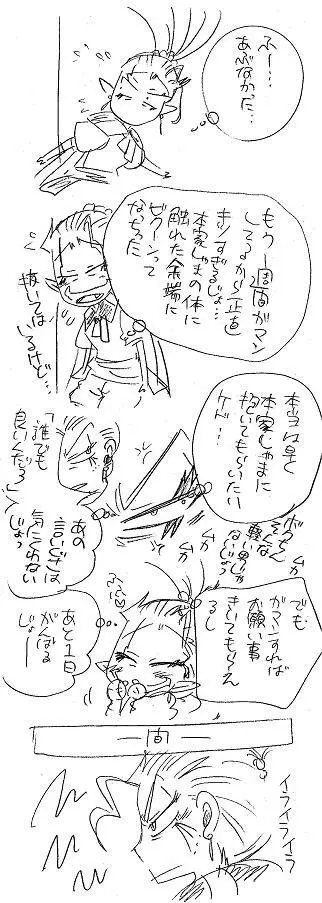 ふー…
あぶなかった…
もう一週間ガマン
してるから正直
キツすぎるじょ…
本家じゃまの体に
触れた余端に
ビクーンって
なっちった
抜いては
いるけど…
本当は早く
本家じゃまに
抱いてもらいたい
ケド…
ボクちん
そんな
軽い男じゃ
ないじょ
ムカ
ムカ
「誰でも
良いんだろ」
あの
言いぐさは
気にくわない
じょっ
でも
ガマンすれば
お願い事
きいてもらえ
るし
あと1日
がんばる
じょー
一間一
イライライラ